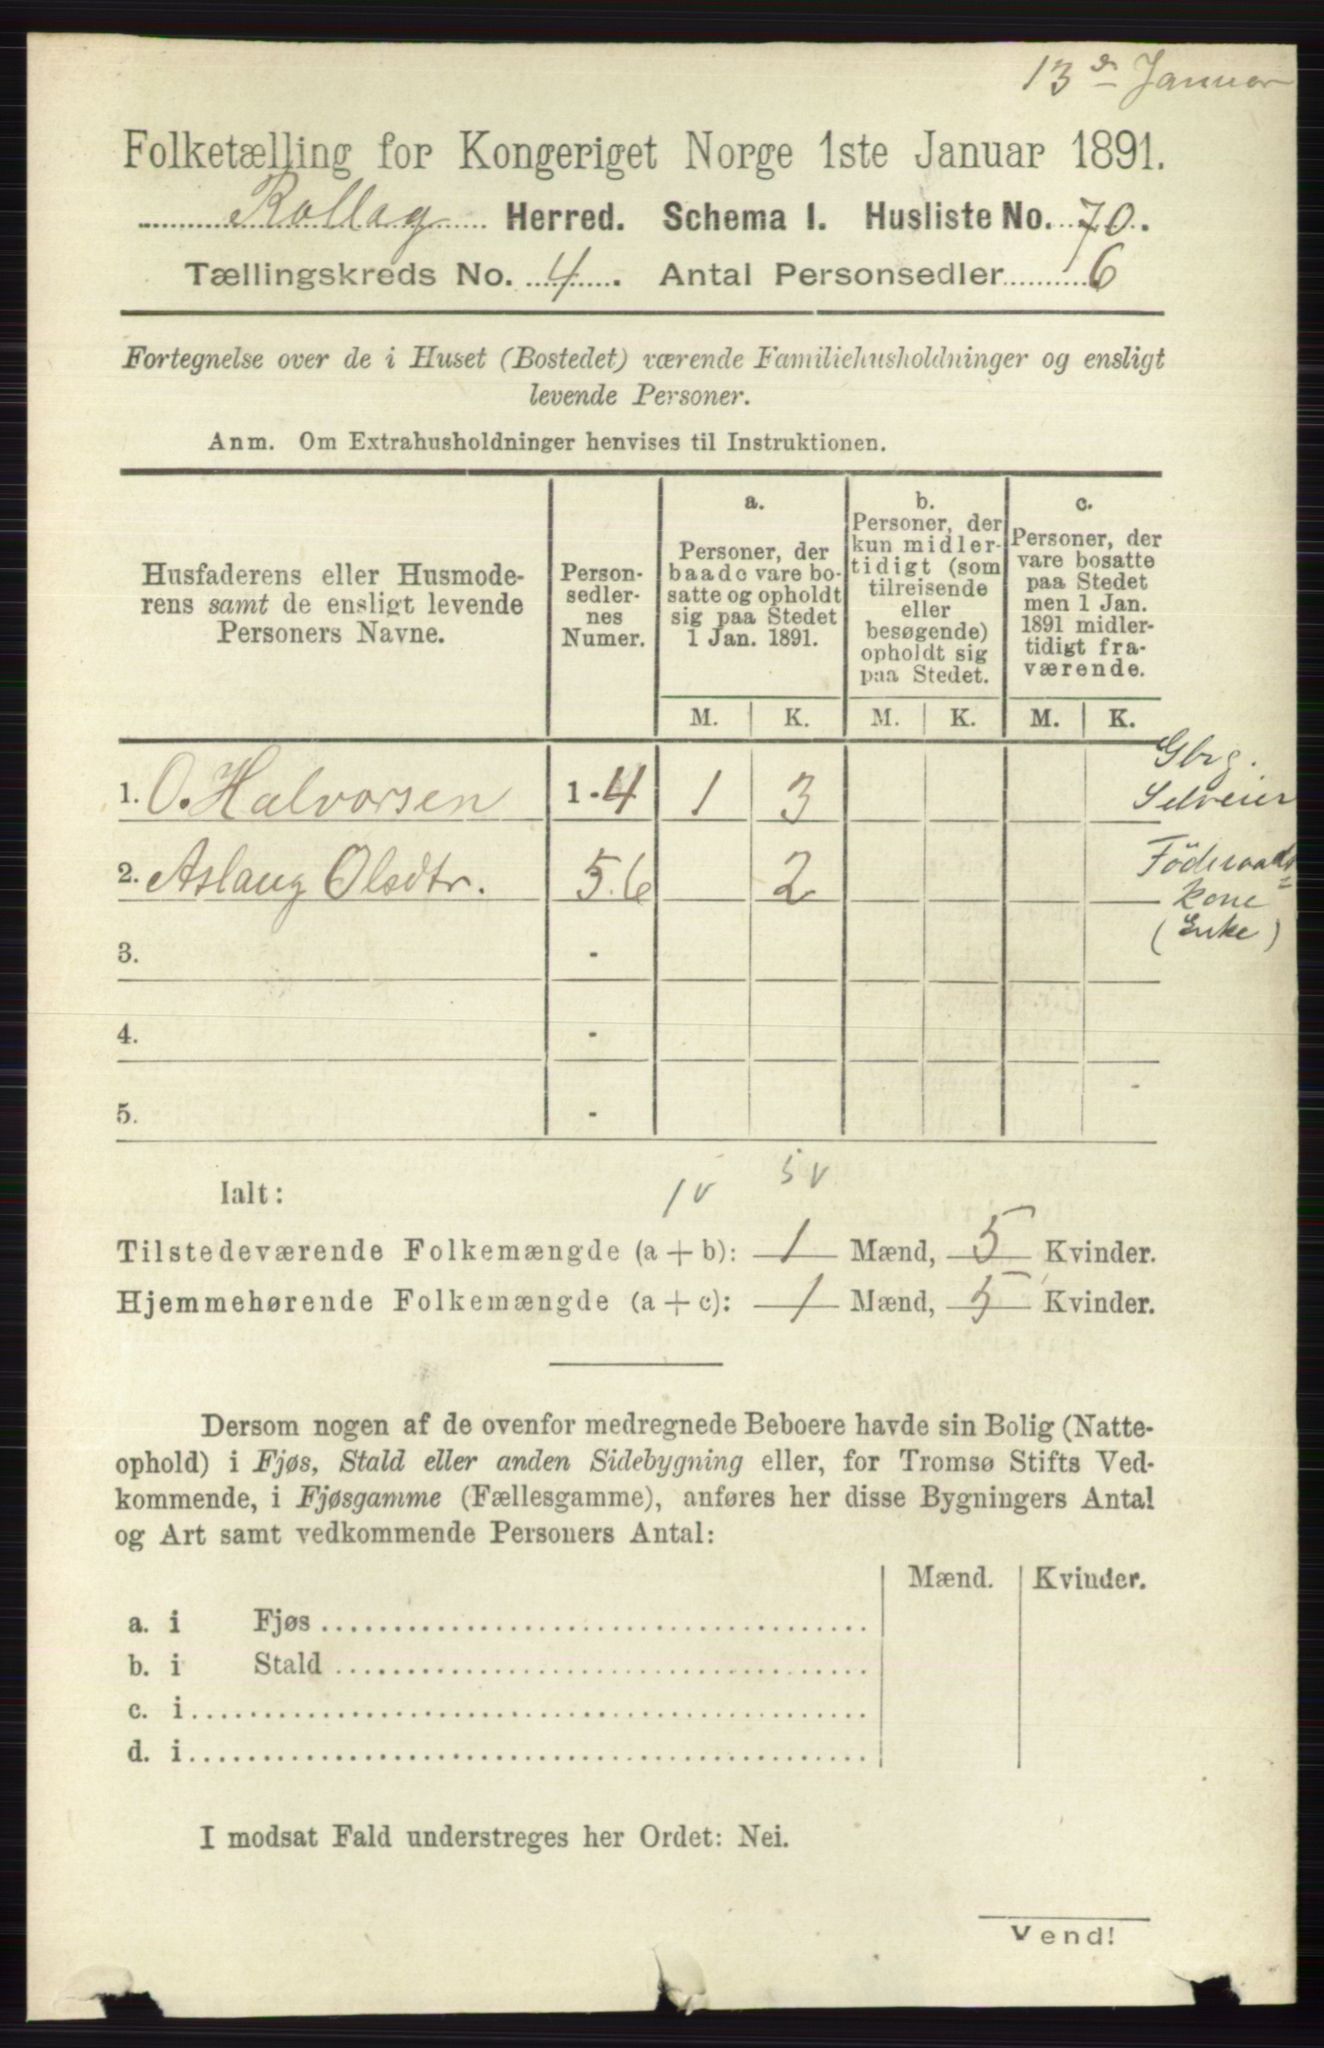 13de Januar
Folketælling for Kongeriget Norge 1ste Januar 1891.
Rollag Herred. Schema I. Husliste No. 70.
Tællingskreds No. 4. Antal Personsedler 6
Fortegnelse over de i Huset (Bostedet) værende Familiehusholdninger og ensligt
levende Personer.
Anm. Om Extrahusholdninger henvises til Instruktionen.
Husfaderens eller Husmode-
rens samt de ensligt levende
Personers Navne.
Person-
sedler-
nes
Numer.
a.
Personer, der
baade vare bo-
satte og opholdt
sig paa Stedet
1 Jan. 1891.
b.
Personer, der
kun midler-
tidigt (som
tilreisende
eller
besøgende)
opholdt sig
paa Stedet.
c.
Personer, der
vare bosatte
paa Stedet
men 1 Jan.
1891 midler-
tidigt fra-
værende.
M. K. M. K. M. K.
1. O. Halvorsen 1-4 1 3 Gbrg.
Selveier
2. Aslaug Olsdtr. 5.6 2 Föderaads=
kone
(Enke)
3. -
4. -
5. -
Ialt: 1v 5v
Tilstedeværende Folkemængde (a + b): 1 Mænd, 5 Kvinder.
Hjemmehørende Folkemængde (a + c): 1 Mænd, 5 Kvinder.
Dersom nogen af de ovenfor medregnede Beboere havde sin Bolig (Natte-
ophold) i Fjøs, Stald eller anden Sidebygning eller, for Tromsø Stifts Ved-
kommende, i Fjøsgamme (Fællesgamme), anføres her disse Bygningers Antal
og Art samt vedkommende Personers Antal:
Mænd. Kvinder.
a. i Fjøs
b. i Stald
c. i
d. i
I modsat Fald understreges her Ordet: Nei.
Vend!